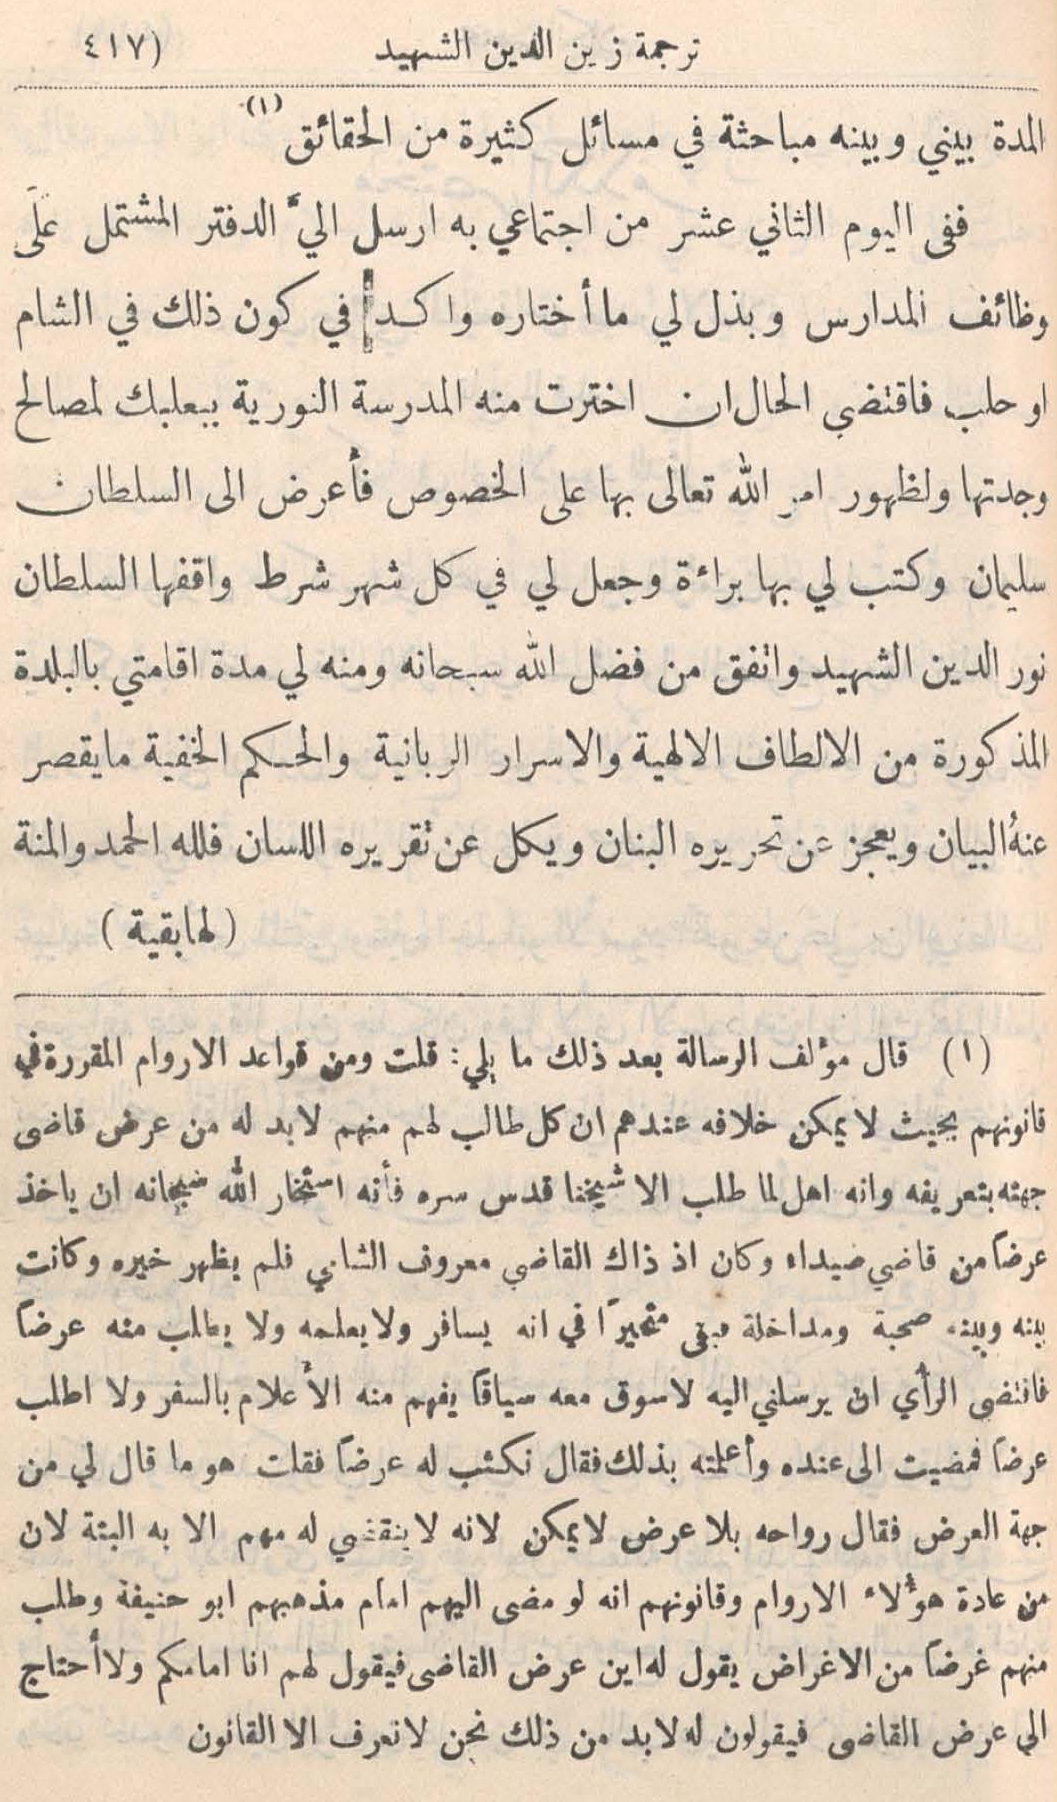 ترجمة زين الدين الشهيد (٤١٧
المدة بيني وبينه مباحثة في مسائل كثيرة من الحقائق (١)
ففى اليوم الثاني عشر من اجتماعي به ارسل اليَّ الدفتر المشتمل علَى
وظائف المدارس وبذل لي ما أختاره واكد في كون ذلك في الشام
او حلب فاقتضى الحال ان اخترت منه المدرسة النورية ببعلبك لمصالح
وجدتها ولظهور امر الله تعالى بها على الخصوص فأعرض الى السلطان
سليمان وكتب لي بها براءة وجعل لي في كل شهر شرط واقفها السلطان
نور الدين الشهيد واتفق من فضل الله سبحانه ومنه لي مدة اقامتي بالبلدة
المذكورة من الالطاف الالهية والاسرار الربانية والحكم الخفية مايقصر
عنهُ البيان ويعجز عن تحريره البنان ويكل عن تقريره اللسان فلله الحمد والمنة
(لها بقية)
(١) قال مؤلف الرسالة بعد ذلك ما يلي: قلت ومن قواعد الاروام المقررة في
قانونهم بحيث لا يمكن خلافه عندهم ان كل طالب لهم منهم لا بد له من عرض قاضى
جهته بتعريفه وانه اهل لما طلب الا شيخنا قدس سره فأنه استخار الله سبحانه ان ياخذ
عرضاً من قاضي صيداء وكان اذ ذاك القاضي معروف الشامي فلم يظهر خيره وكانت
بينه وبينه صحبة ومداخلة فبقى متحيرًا في انه يسافر ولا يعلمه ولا يطلب منه عرضاً
فاقتضى الرأي ان يرسلني اليه لاسوق معه سياقاً يفهم منه الأعلام بالسفر ولا اطلب
عرضاً فمضيت الى عنده وأعلمته بذلك فقال نكتب له عرضاً فقلت هو ما قال لي من
جهة العرض فقال رواحه بلا عرض لا يمكن لانه لا ينقضي له مهم الا به البتة لان
من عادة هؤلاء الاروام وقانونهم انه لو مضى اليهم امام مذهبهم ابو حنيفة وطلب
منهم غرضاً من الاغراض يقول له اين عرض القاضى فيقول لهم انا امامكم ولا أحتاج
الى عرض القاضى فيقولون له لا بد من ذلك نحن لا نعرف الا القانون